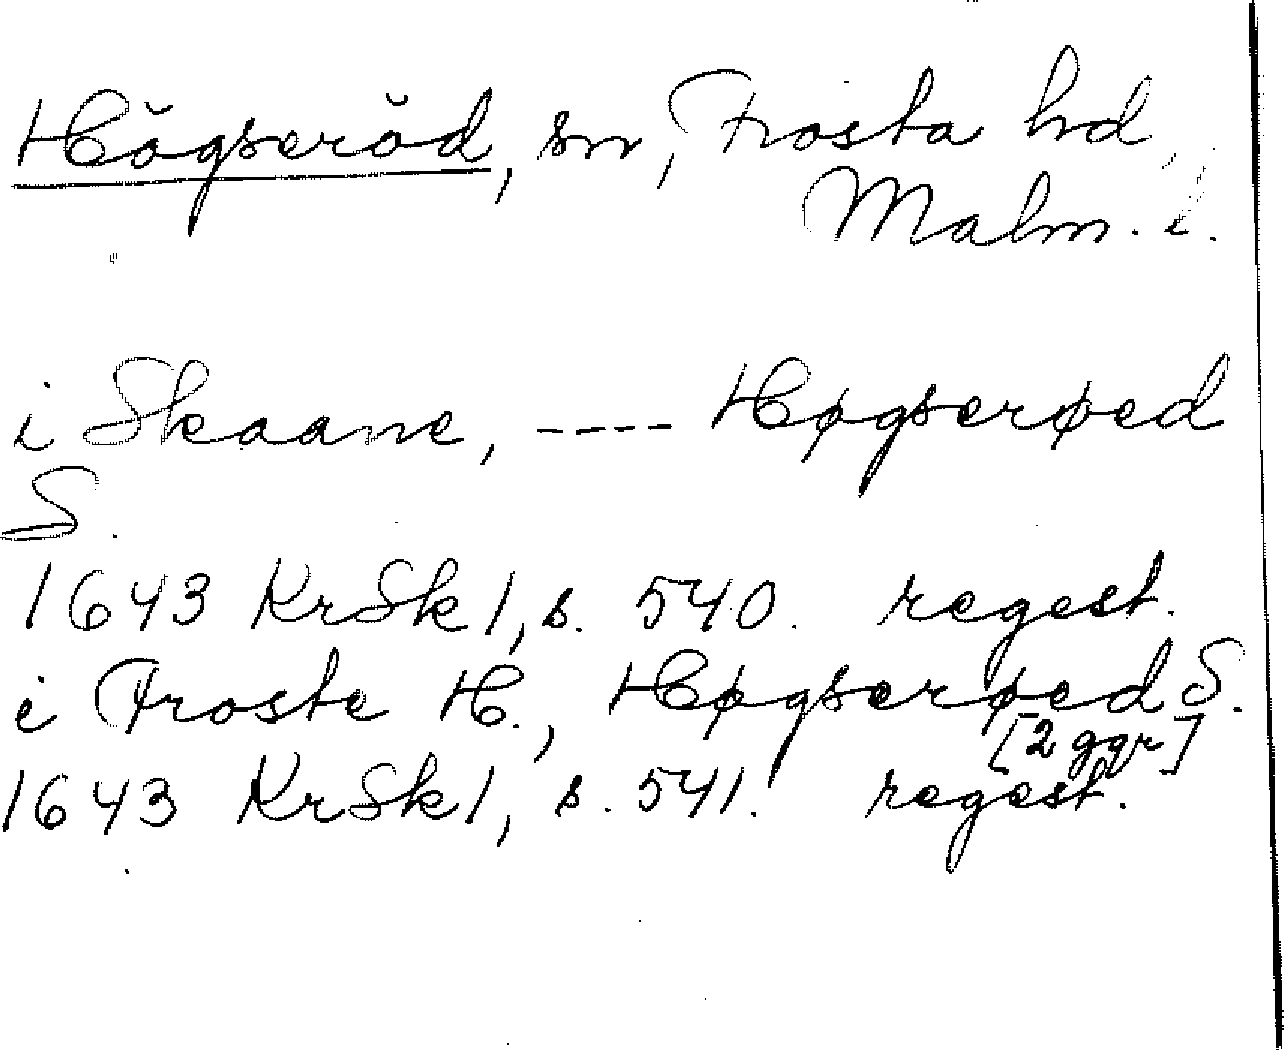 Högseröd, sn, Frosta hd,
Malm. l.
i Skaane, ---- Høgserøed
S.
1643 KrSk 1, s. 540. regest.
i Froste H., Høgserøed S.
[2 ggr]
1643 KrSk 1, s. 541. regest.